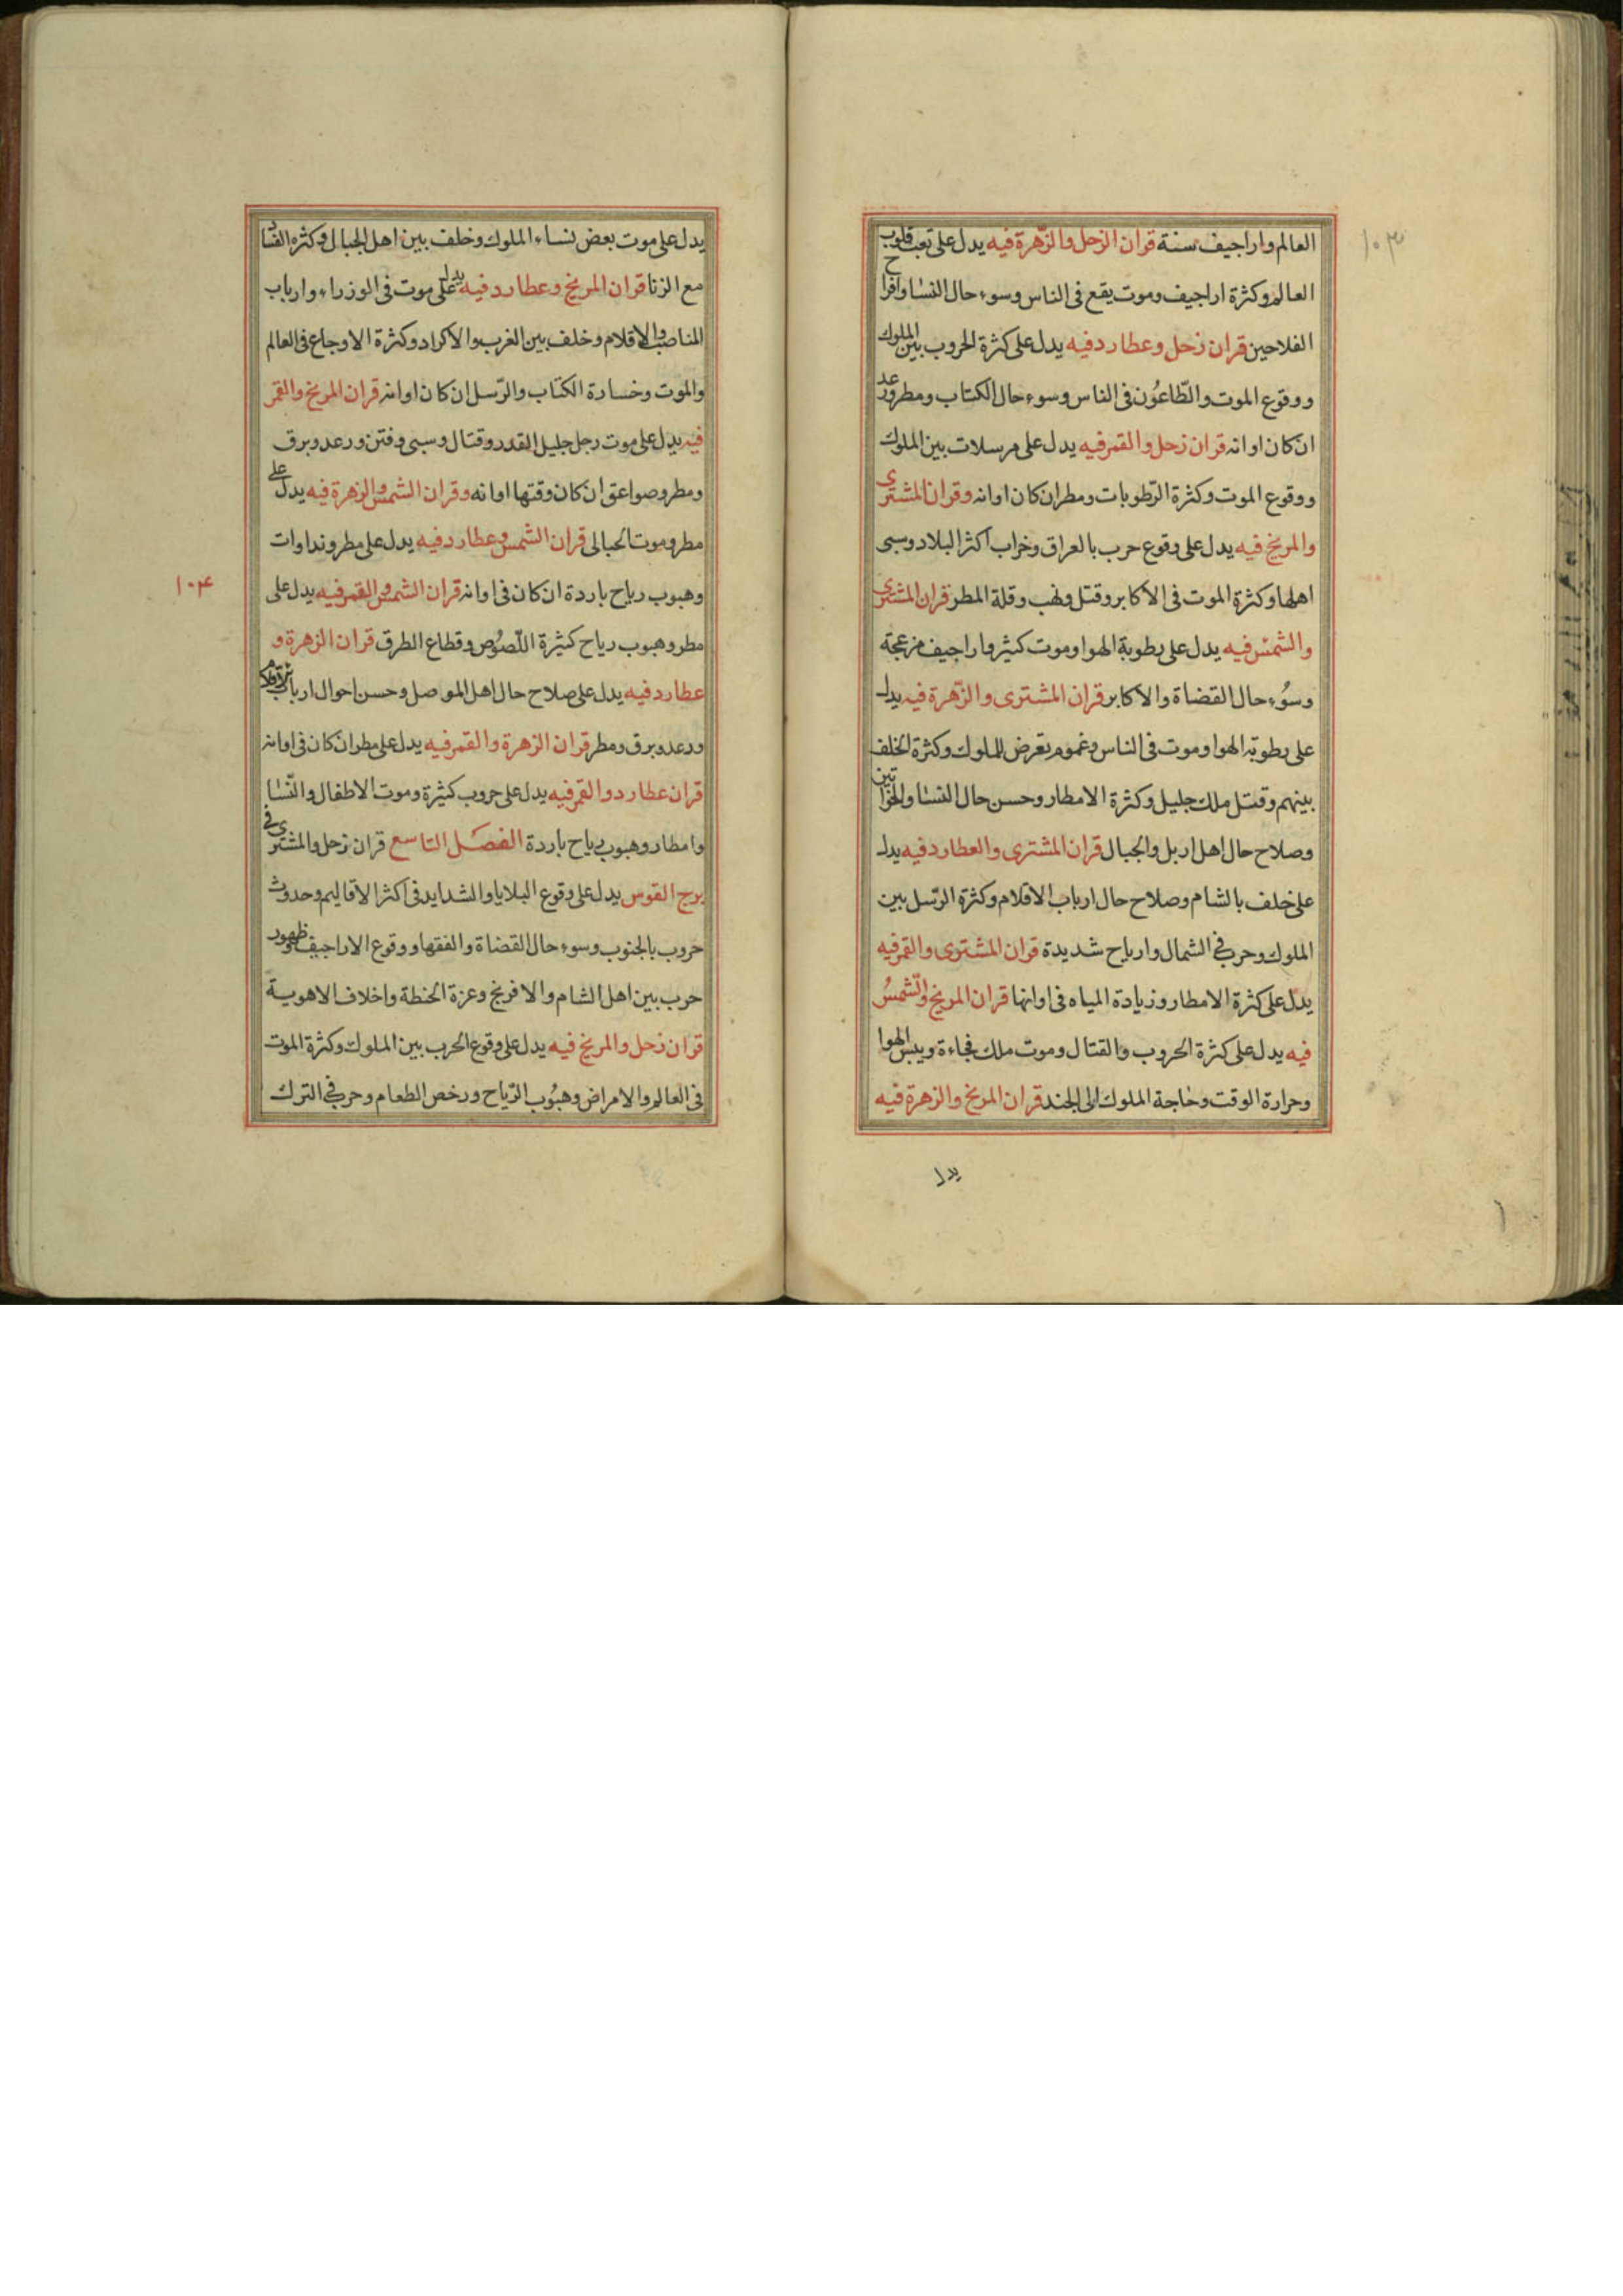 ١٠٣
العالم واراجيف سنة قران الزحل والزهرة فيه يدل على تعب قلوب
العالم وكثرة اراجيف وموت يقع فى الناس وسوء حال النسا وافراح
الفلاحين قران زحل وعطارد فيه يدل على كثرة الحروب بين الملوك
ووقوع الموت والطّاعُون فى الناس وسوء حال الكتاب ومطر ورعد
ان كان اوانه قران زحل والقمر فيه يدل على مرسلات بين الملوك
ووقوع الموت وكثرة الرّطوبات ومطر ان كان اوانه وقران المشترى
والمريخ فيه يدل على وقوع حرب بالعراق وخراب اكثر البلاد وسبى
اهلها وكثرة الموت فى الاكابر وقتل ونهب وقلة المطر قران المشترى
والشمس فيه يدل على رطوبة الهوا وموت كثير واراجيف مزعجة
وسُوء حال القضاة والاكابر قران المشترى والزّهرة فيه يدل
على رطوبة الهوا وموت فى الناس وغموم تعرض للملوك وكثرة الخلف
بينهم وقتل ملك جليل وكثرة الامطار وحسن حال النسا والخواتين
وصلاح حال اهل اربل والجبال قران المشترى والعطارد فيه يدل
على خلف بالشام وصلاح حال ارباب الاقلام وكثرة الرّسل بين
الملوك وحر فى الشمال وارياح شديدة قران المشترى والقمر فيه
يدل على كثرة الامطار وزيادة المياه فى اوانها قران المريخ والشمسُ
فيه يدل على كثرة الحروب والقتال وموت ملك فجاءة ويبس الهوا
وحرارة الوقت وحاجة الملوك الى الجند قران المريخ والزهرة فيه
يدل
يدل على موت بعض نساء الملوك وخلف بين اهل الجبال وكثره النسا
مع الزنا قران المريخ وعطارد فيه يدل على موت فى الوزراء وارباب
المناصب والاقلام وخلف بين الغرب والاكراد وكثرة الاوجاع فى العالم
والموت وخسارة الكتاب والرّسل ان كان اوانه قران المريخ والقمر
فيه يدل على موت رجل جليل القدر وقتال وسبى وفتن ورعد وبرق
ومطر وصواعق ان كان وقتها اوانه وقران الشمس والزهرة فيه يدل على
مطر وموت الحبالى قران الشمس وعطارد فيه يدل على مطر ونداوات
وهبوب رياح باردة ان كان فى اوانه قران الشمس والقمر فيه يدل على
مطر وهبوب رياح كثيرة اللّصُوص وقطاع الطرق قران الزهرة و
عطارد فيه يدل على صلاح حال اهل الموصل وحسن احوال ارباب الاقلام
ورعد وبرق ومطر قران الزهرة والقمر فيه يدل على مطر ان كان فى اوانه
قران عطارد والقمر فيه يدل على حروب كثيرة وموت الاطفال والنّسا
وامطار وهبوب رياح باردة الفصَل التاسع قران زحل والمشترى فى
برج القوس يدل على وقوع البلايا والشدايد فى اكثر الاقاليم وحدوث
حروب بالجنوب وسوء حال القضاة والفقها ووقوع الاراجيف وظهور
حرب بين اهل الشام والافرنج وعزة الحنطة واخلاف الاهوية
قران زحل والمريخ فيه يدل على وقوع الحرب بين الملوك وكثرة الموت
فى العالم والامراض وهبُوب الرّياح ورخص الطعام وحر فى الترك
١٠۴